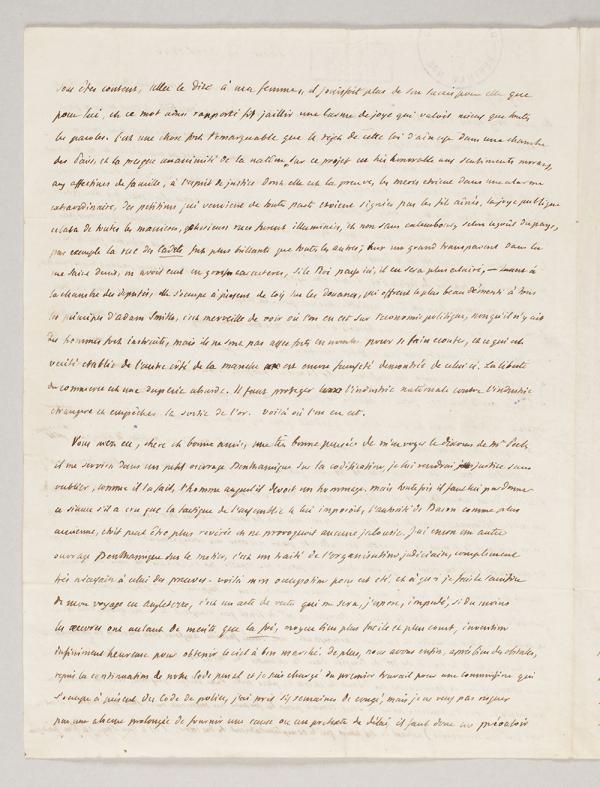 vous êtes content, elle le dise à ma femme, il jouissoit plus de son succès pour elle que
pour lui, et ce mot a vous rapporté fit jaillir une larme de joye qui valoit mieux que toutes
les paroles. C'est une chose fort remarquable que le rejet de cette loi d'ainesse dans une chambre
des Pairs, et la presque unanimité de la nation, sur ce projet est très honorable aux sentiments moraux,
aux affections de famille, à l'esprit de justice dont elle est la preuve, les mères etoient dans une alarme
extraordinaire, des petitions qui venoient de toute part etoient signées par les fils ainés, la joye publique
eclata de toutes les manieres, plusieurs rues furent illuminées, et non sans calembours, selon le goût du pays,
par exemple la rue des Cadets fut plus brillante que toutes les autres; sur un grand transparent dans la
rue Saint Denis, on avoit ecrit en gros caracteres, si le Roi passe ici, il en sera plus eclairé, — Quant à
la chambre des deputés, elle s'occupe à present de loix sur les douanes, qui offrent le plus beau démenti à tous
les principes d'adam Smith, c'est merveille de voir où l'on en est sur l'economie politique, non qu'il n'y ait
des hommes fort instruits, mais ils ne sont pas assez forts en nombre pour se faire ecouter, et ce qui est
verité etablie de l'autre côté de la manche est encore fausseté demontrée de celui ci. La liberté
du commerce est une duperie absurde. Il faut proteger l'industrie nationale contre l'industrie
etrangere et empêcher la sortie de l'or. voilà où l'on en est.
Vous avez eu, chere et bonne amie, une très bonne pensée de m'envoyer le discours de Mr Peel,
il me servira dans un petit ouvrage Benthamique sur la codification, je lui rendrai justice sans
oublier, comme il l'a fait, l'homme auquel il devoit un hommage. mais toutefois il faut lui pardonner
ce silence s'il a cru que la tactique de l'assemblée le lui imposoit, l'autorité de Bacon comme plus
ancienne, etoit peut être plus reverée et ne provoquoit aucune jalousie. J'ai encore un autre
ouvrage Benthamique sur le metier, c'est un traité de l'organisation judiciaire, complement
très necessaire à celui des preuves. voilà mon occupation pour cet eté, et à qui je fais le sacrifice
de mon voyage en angleterre, c'est un acte de vertu qui me sera, j'espere, imputé, si du moins
les œuvres ont autant de merite que la foi, moyen bien plus facile et plus court, invention
infiniment heureuse pour obtenir le ciel à bon marché. De plus, nous avons enfin, après bien des obstacles,
repris la continuation de notre Code penal et je suis chargé du premier travail pour une commission qui
s'occupe à present du Code de police, j'ai pris six semaines de congé, mais je ne veux pas risquer
par une absence prolongée de fournir une cause ou un pretexte de délai, il faut donc me prevaloir